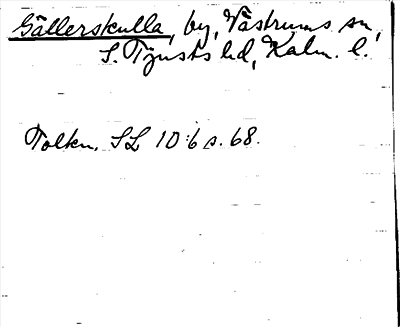 Gällerskulla, by, Västrums sn,
S. Tjusts hd, Kalm. l.
Tolkn. SL 10:6 s. 68.